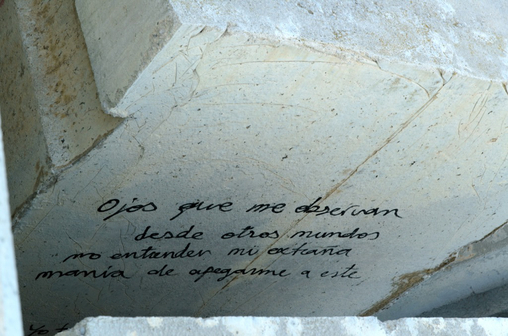 Ojos que me observan
desde otros mundos
no entienden mi extraña
mania de apegarme a este